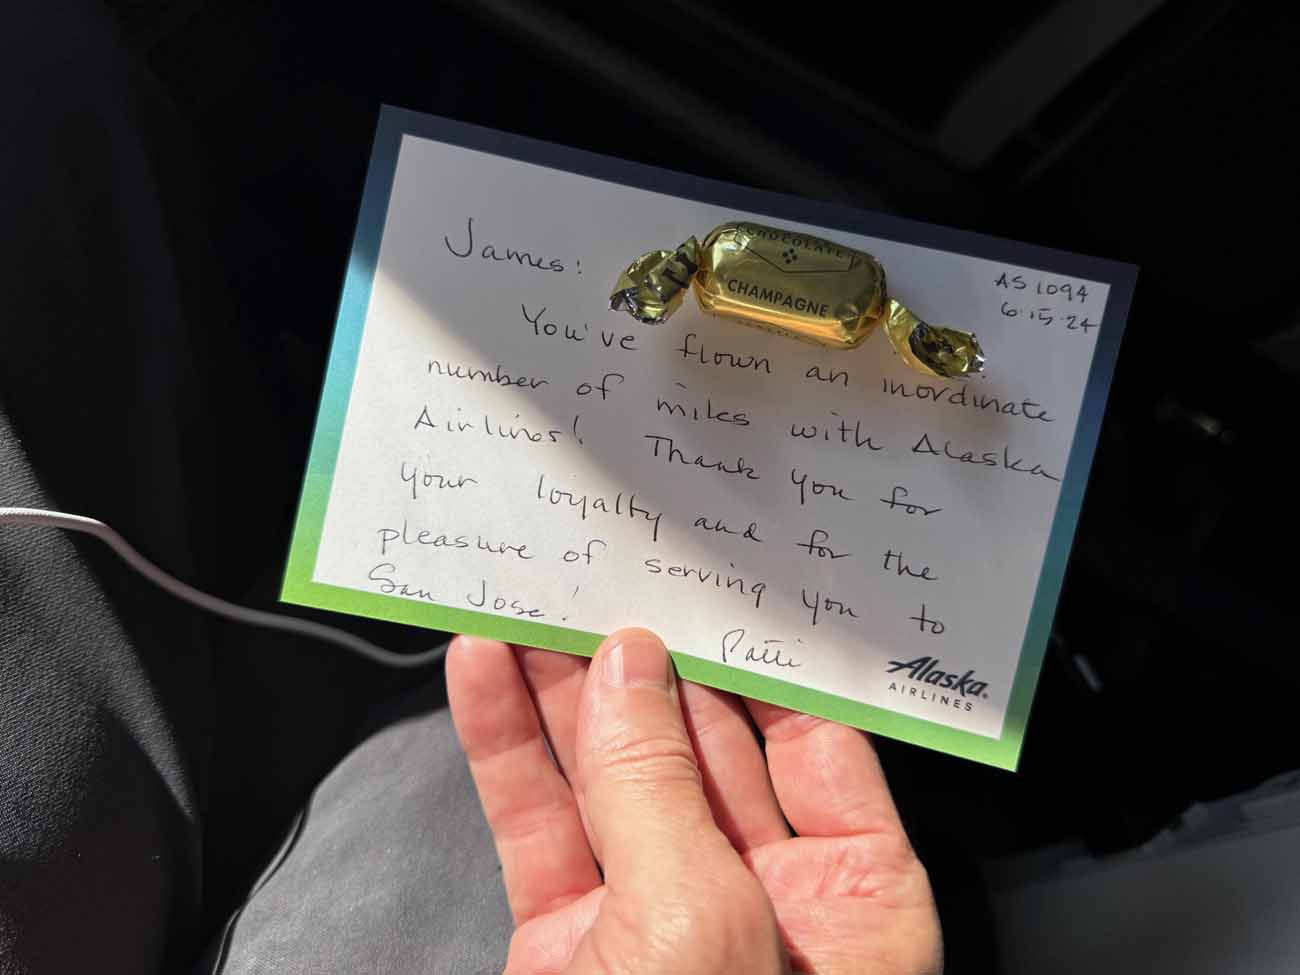 AS 1094
6·15·24
James:
CHOCOLATE
CHAMPAGNE
You've flown an inordinate
number of miles with Alaska
Airlines! Thank you for
your loyalty and for the
pleasure of serving you to
San Jose!
Patti
Alaska®
AIRLINES